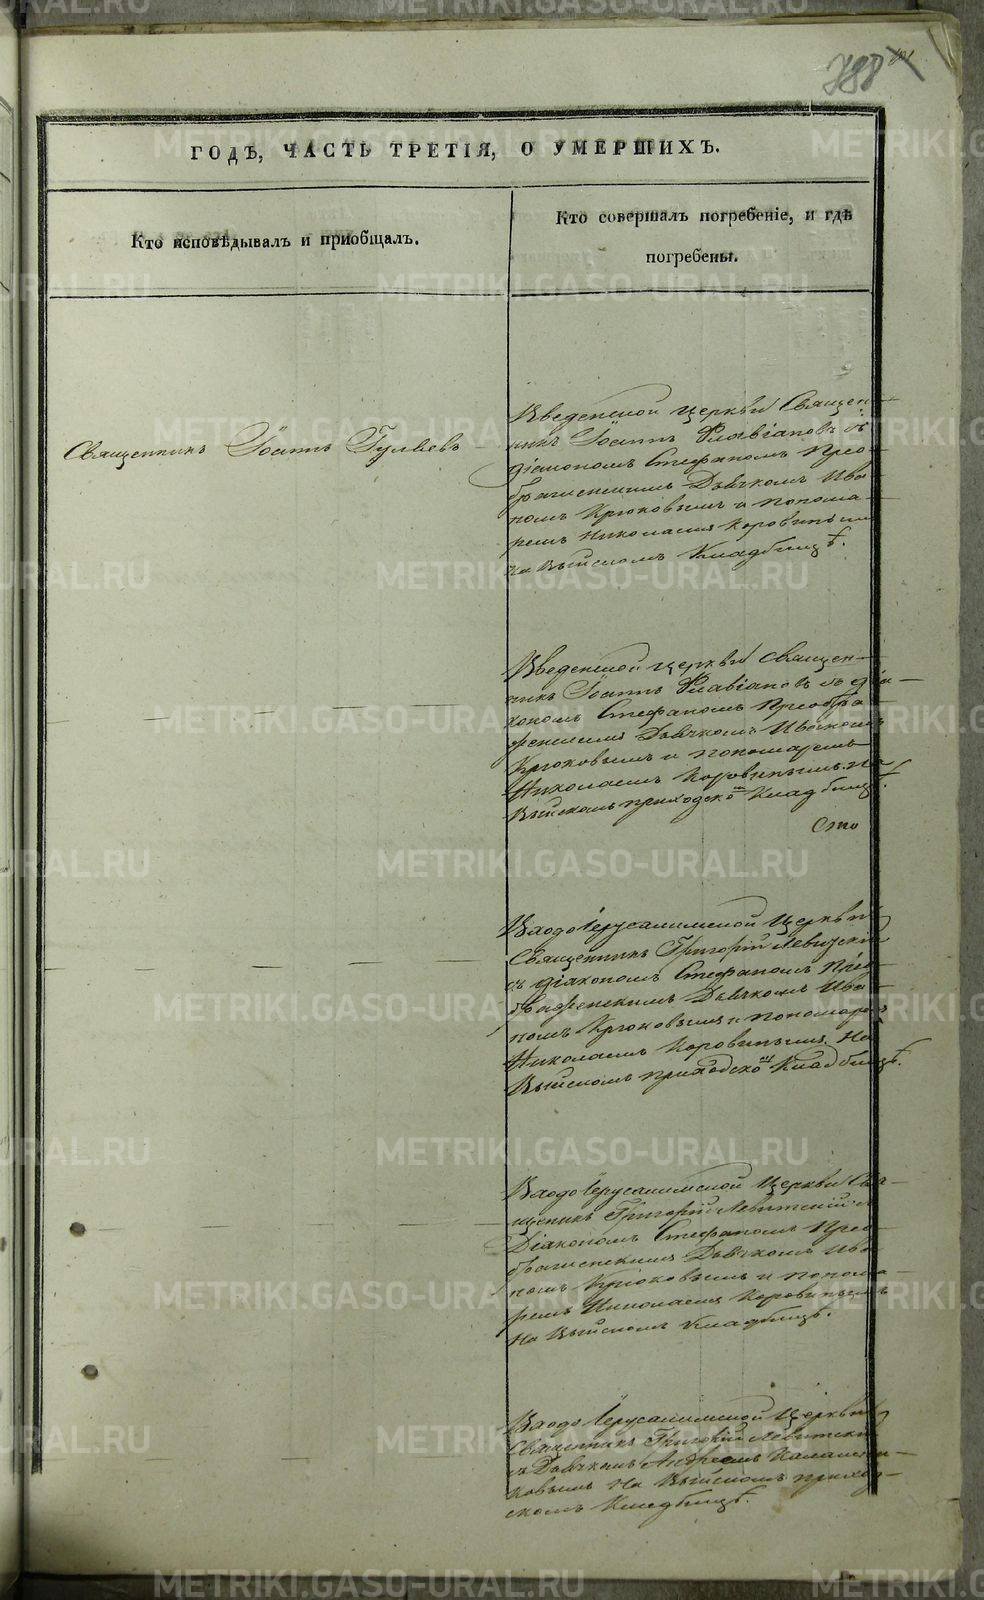 788
ГОДЪ, ЧАСТЬ ТРЕТІЯ, О УМЕРШИХЪ.
Кто исповѣдывалъ и приобщалъ.
Кто совершалъ погребеніе, и гдѣ
погребены.
Священникъ Іоаннъ Гуляевъ
Введенской церкви Священ-
никъ Іоаннъ Флавіановъ съ
діакономъ Стефаномъ Прео-
браженскимъ Дьячкомъ Ива-
номъ Крюковымъ и понома-
ремъ Николаемъ Коровинымъ
на Выйскомъ Кладбищѣ.
Введенской церкви Священ-
никъ Іоаннъ Флавіановъ съ діа-
кономъ Стефаномъ Преобра-
женскимъ Дьячкомъ Иваномъ
Крюковымъ и пономаремъ
Николаемъ Коровинымъ на
Выйскомъ приходском Кладбищѣ.
Сто
Входо Іерусалимской Церкви
Священникъ Григорій Левитскій
съ діакономъ Стефаномъ Прео-
браженскимъ Дьячкомъ Ива-
номъ Крюковымъ и пономаремъ
Николаемъ Коровинымъ На
Выйскомъ приходском Кладбищѣ.
Входо Іерусалимской Церкви Свя-
щеникъ Григорій Левитскій съ
Діакономъ Стефаномъ Прео-
браженскимъ Дьячкомъ Ива-
номъ Крюковымъ и понома-
ремъ Николаемъ Коровинымъ
На Выйскомъ кладбищѣ.
Входо Іерусалимской Церкви
Священникъ Григорій Левитскій
съ Дьячкомъ Андреемъ
ковымъ На Выйскомъ приход-
скомъ Кладбищѣ.
METRIKI.GASO-URAL.RU